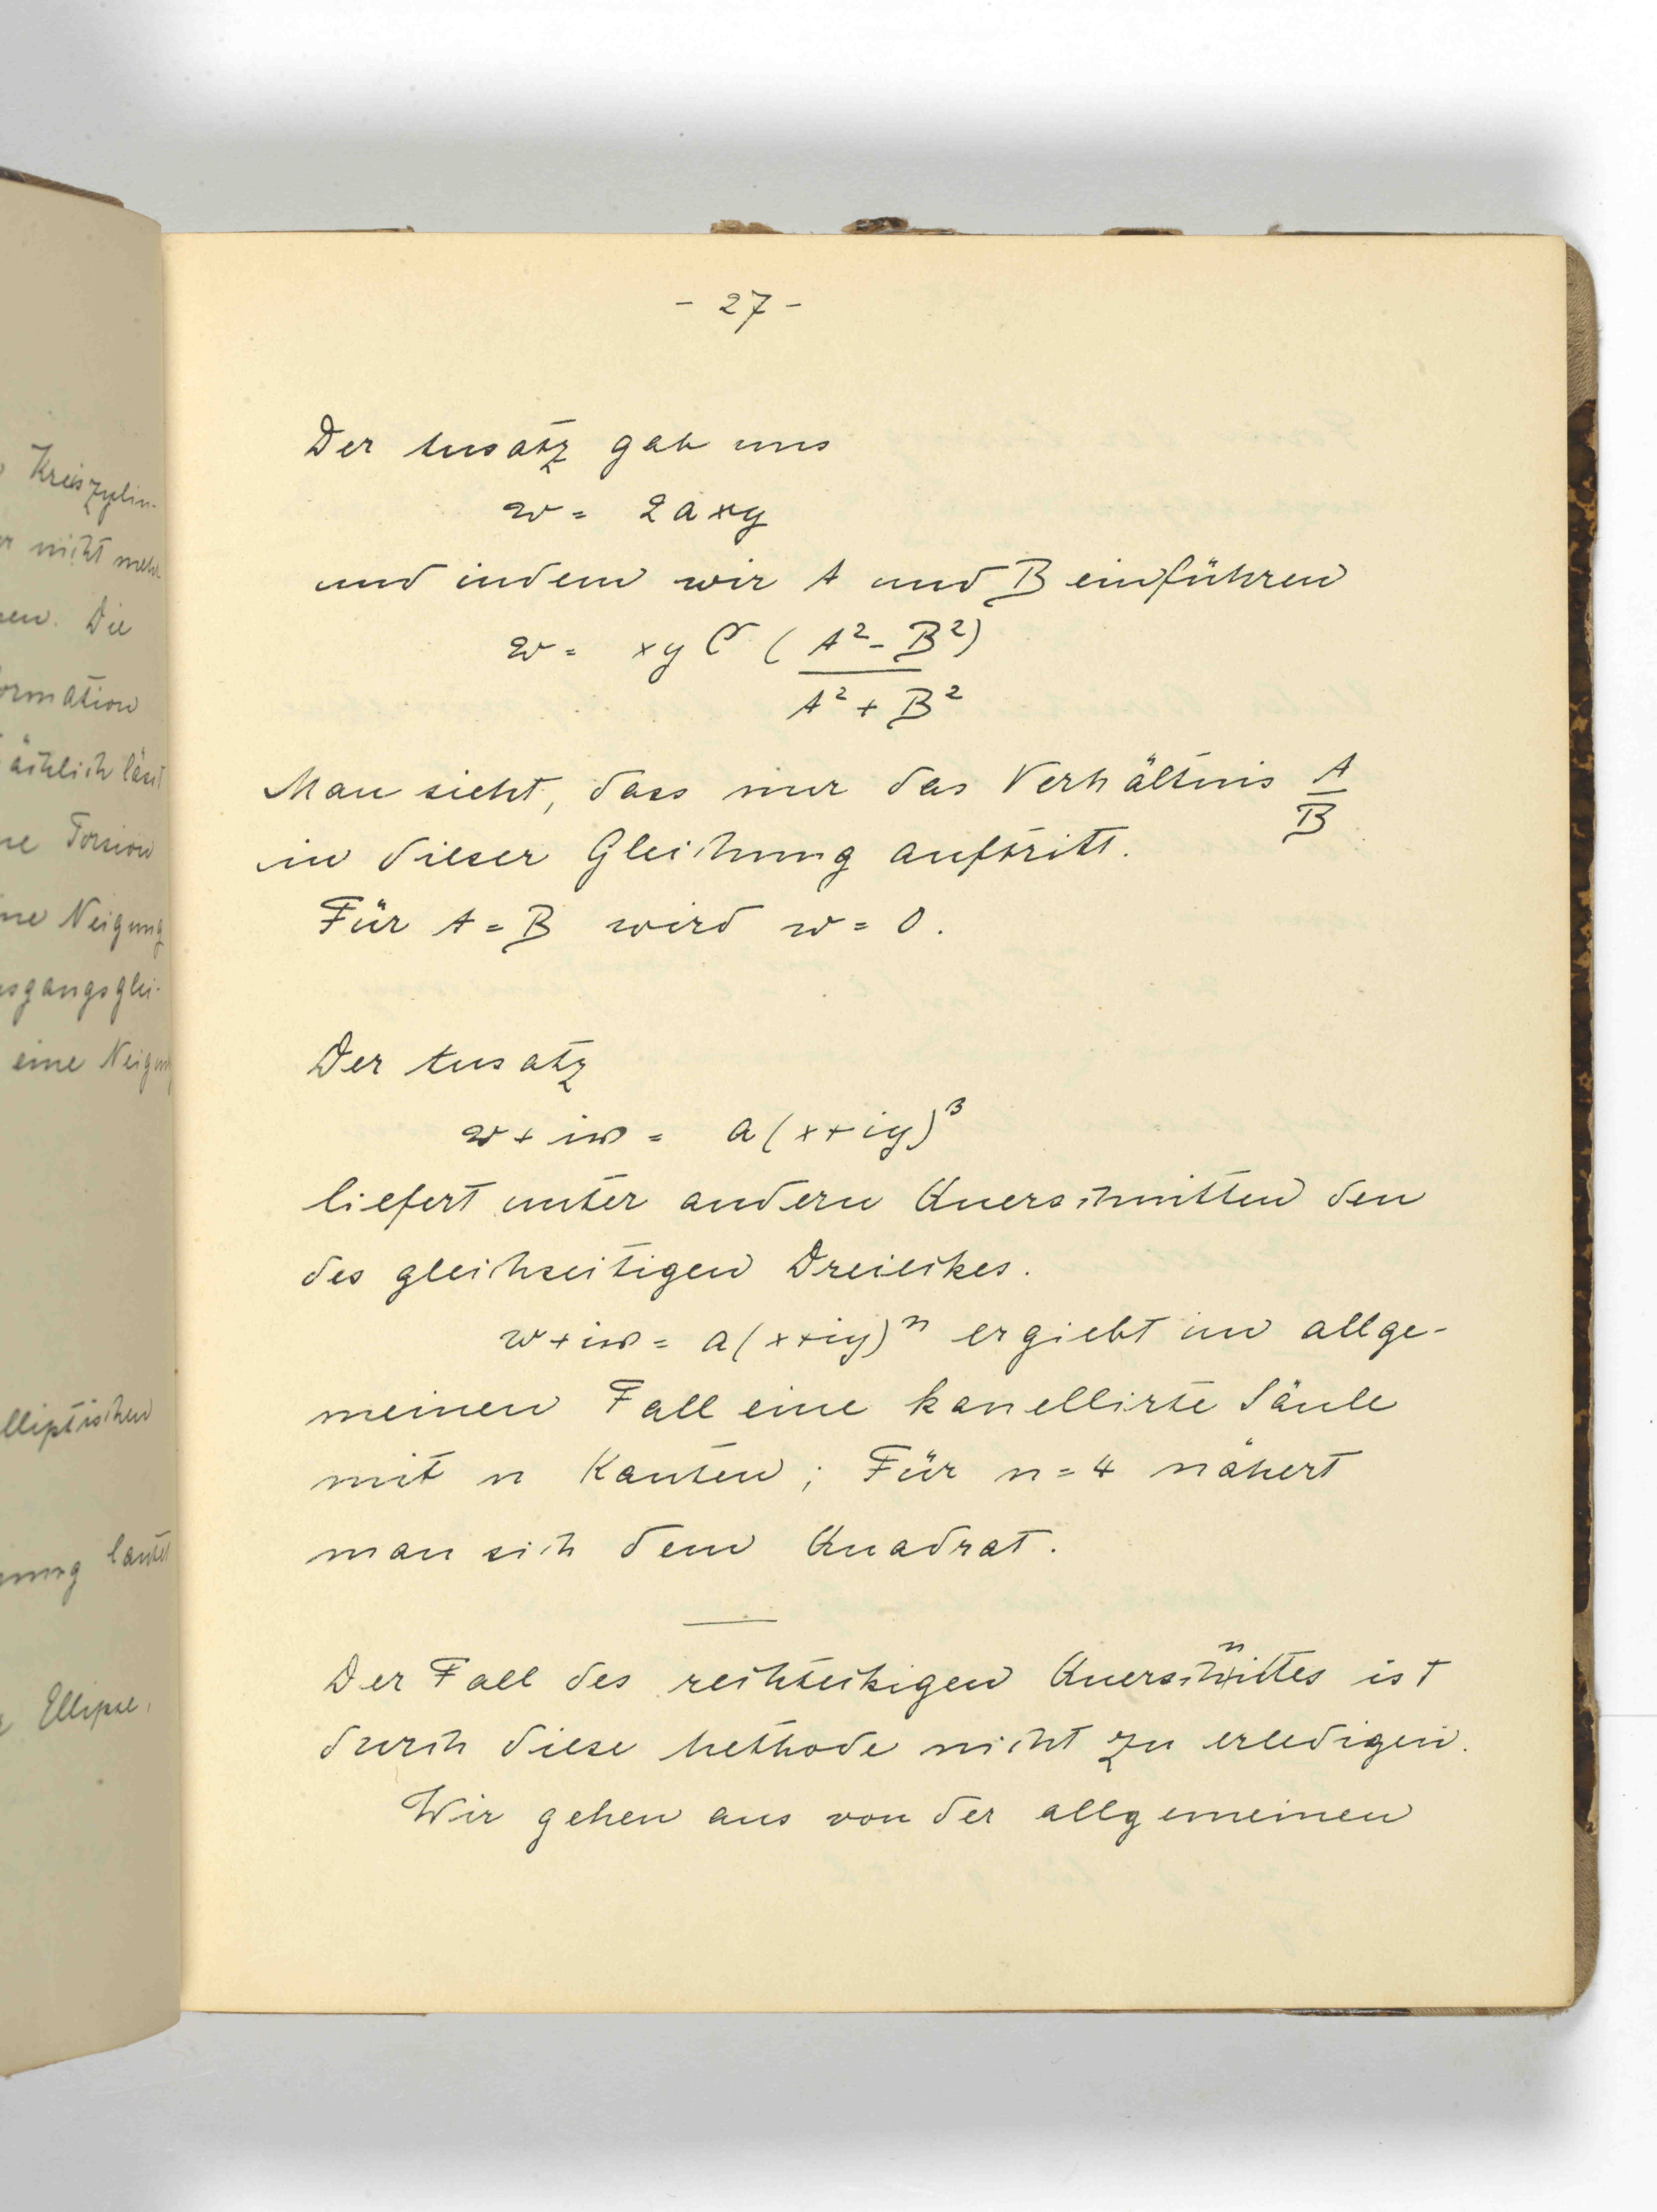 Kreiszylin-
nicht mehr
Die
ormation
ächlich lässt
Torsion
Neigung
sgangsglei-
eine Neigung
elliptischen
lautet
Ellipse,
- 27 -
Der Ansatz gab uns
w = 2axy
und indem wir A und B einführen
w = xy C (A² - B²)
A² + B²
Man sieht, dass nur das Verhältnis A/B
in dieser Gleichung auftritt.
Für A = B wird w = 0.
Der Ansatz
w + iw = a(x+iy)³
liefert unter andern Querschnitten den
des gleichseitigen Dreieckes.
w + iw = a(x+iy)ⁿ ergiebt im allge-
meinen Fall eine kanellirte Säule
mit n Kanten; Für n = 4 nähert
man sich dem Quadrat.
Der Fall des rechteckigen Querschnittes ist
durch diese Methode nicht zu erledigen.
Wir gehen aus von der allgemeinen